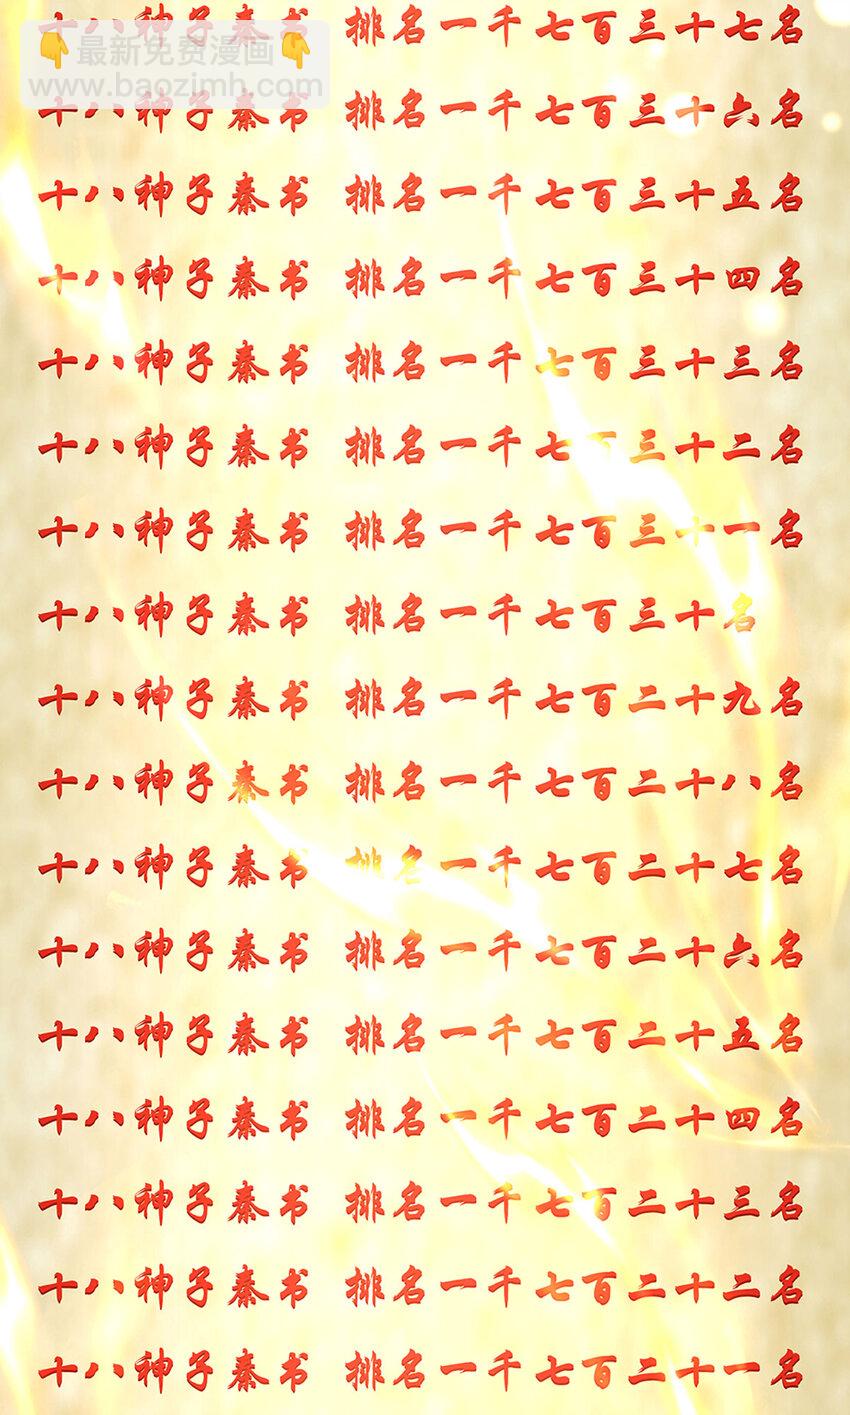 十八神子秦书 排名一千七百三十七名
👇最新免费漫画👇
www.baozimh.com
十八神子秦书 排名一千七百三十六名
十八神子秦书 排名一千七百三十五名
十八神子秦书 排名一千七百三十四名
十八神子秦书 排名一千七百三十三名
十八神子秦书 排名一千七百三十二名
十八神子秦书 排名一千七百三十一名
十八神子秦书 排名一千七百三十名
十八神子秦书 排名一千七百二十九名
十八神子秦书 排名一千七百二十八名
十八神子秦书 排名一千七百二十七名
十八神子秦书 排名一千七百二十六名
十八神子秦书 排名一千七百二十五名
十八神子秦书 排名一千七百二十四名
十八神子秦书 排名一千七百二十三名
十八神子秦书 排名一千七百二十二名
十八神子秦书 排名一千七百二十一名